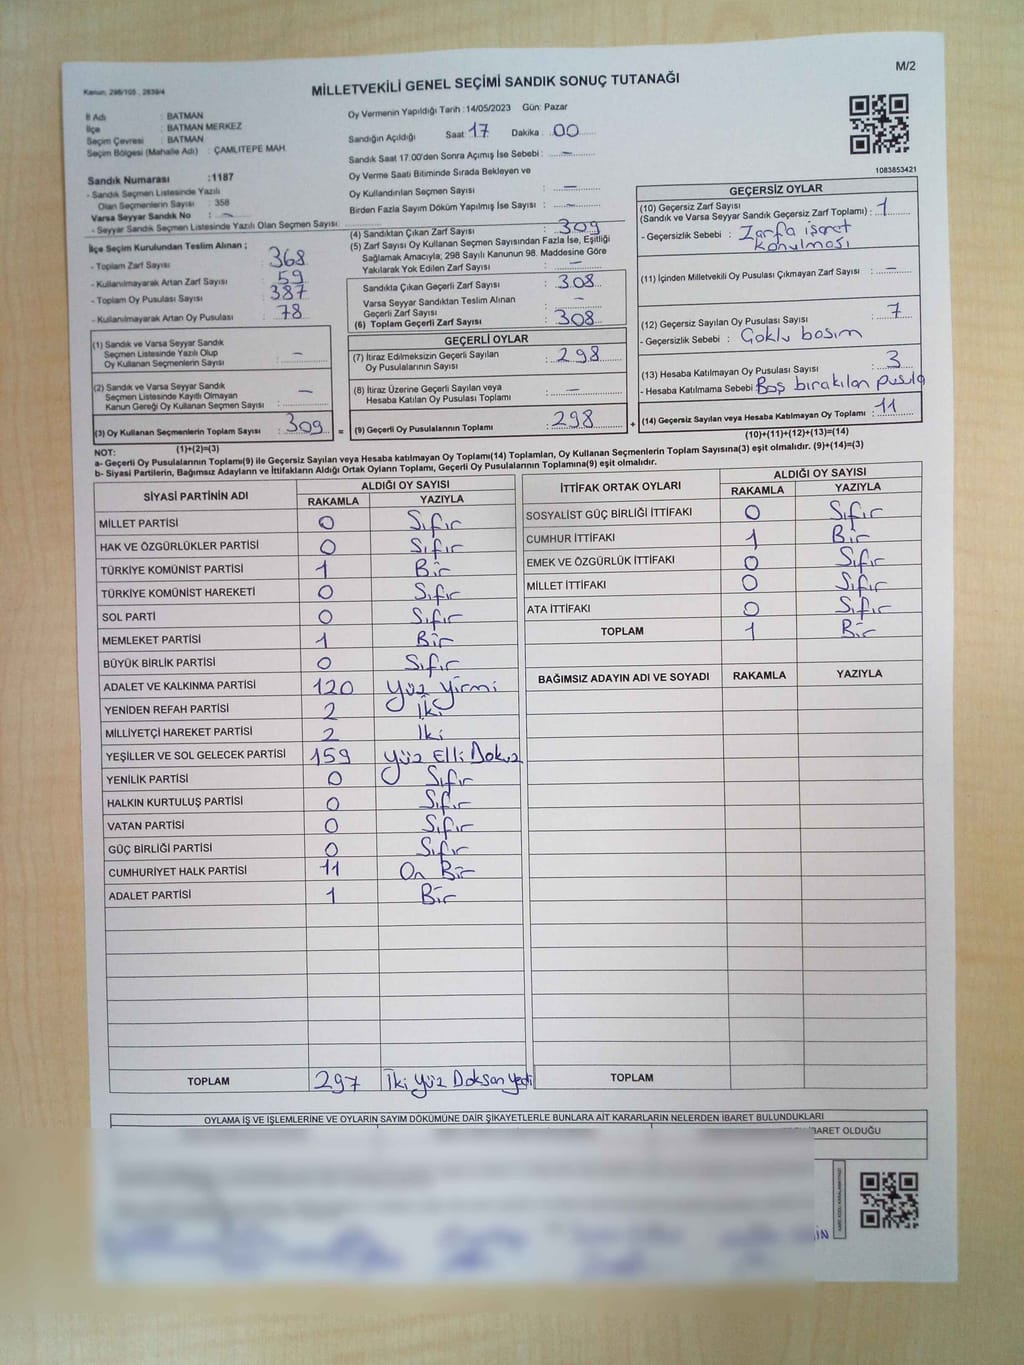 M/2
Kanun: 298/105 , 2839/4
MİLLETVEKİLİ GENEL SEÇİMİ SANDIK SONUÇ TUTANAĞI
İl Adı : BATMAN
İlçe : BATMAN MERKEZ
Seçim Çevresi : BATMAN
Seçim Bölgesi (Mahalle Adı) : ÇAMLITEPE MAH.
Sandık Numarası :1187
- Sandık Seçmen Listesinde Yazılı
Olan Seçmenlerin Sayısı : 358
Varsa Seyyar Sandık No : –
- Seyyar Sandık Seçmen Listesinde Yazılı Olan Seçmen Sayısı:
İlçe Seçim Kurulundan Teslim Alınan ;
- Toplam Zarf Sayısı : 368
- Kullanılmayarak Artan Zarf Sayısı : 59
- Toplam Oy Pusulası Sayısı : 387
- Kullanılmayarak Artan Oy Pusulası : 78
(1) Sandık ve Varsa Seyyar Sandık
Seçmen Listesinde Yazılı Olup
Oy Kullanan Seçmenlerin Sayısı : –
(2) Sandık ve Varsa Seyyar Sandık
Seçmen Listesinde Kayıtlı Olmayan
Kanun Gereği Oy Kullanan Seçmen Sayısı : –
(3) Oy Kullanan Seçmenlerin Toplam Sayısı : 309 =
Oy Vermenin Yapıldığı Tarih : 14/05/2023 Gün: Pazar
Sandığın Açıldığı Saat 17 Dakika : 00
Sandık Saat 17.00'den Sonra Açımış İse Sebebi : –
Oy Verme Saati Bitiminde Sırada Bekleyen ve
Oy Kullandırılan Seçmen Sayısı : –
Birden Fazla Sayım Döküm Yapılmış İse Sayısı : –
(4) Sandıktan Çıkan Zarf Sayısı : 309
(5) Zarf Sayısı Oy Kullanan Seçmen Sayısından Fazla İse, Eşitliği
Sağlamak Amacıyla; 298 Sayılı Kanunun 98. Maddesine Göre
Yakılarak Yok Edilen Zarf Sayısı : –
Sandıkta Çıkan Geçerli Zarf Sayısı : 308
Varsa Seyyar Sandıktan Teslim Alınan
Geçerli Zarf Sayısı : –
(6) Toplam Geçerli Zarf Sayısı : 308
GEÇERLİ OYLAR
(7) İtiraz Edilmeksizin Geçerli Sayılan
Oy Pusulalarının Sayısı : 298
(8) İtiraz Üzerine Geçerli Sayılan veya
Hesaba Katılan Oy Pusulası Toplamı : –
(9) Geçerli Oy Pusulalarının Toplamı : 298 +
1083853421
GEÇERSİZ OYLAR
(10) Geçersiz Zarf Sayısı
(Sandık ve Varsa Seyyar Sandık Geçersiz Zarf Toplamı) : 1
- Geçersizlik Sebebi : Zarfa işaret
konulması
(11) İçinden Milletvekili Oy Pusulası Çıkmayan Zarf Sayısı : –
(12) Geçersiz Sayılan Oy Pusulası Sayısı : 7
- Geçersizlik Sebebi : Çoklu basım
(13) Hesaba Katılmayan Oy Pusulası Sayısı : 3
- Hesaba Katılmama Sebebi : Boş bırakılan pusula
(14) Geçersiz Sayılan veya Hesaba Katılmayan Oy Toplamı : 11
(10)+(11)+(12)+(13)=(14)
NOT: (1)+(2)=(3)
a- Geçerli Oy Pusulalarının Toplamı(9) ile Geçersiz Sayılan veya Hesaba katılmayan Oy Toplamı(14) Toplamları, Oy Kullanan Seçmenlerin Toplam Sayısına(3) eşit olmalıdır. (9)+(14)=(3)
b- Siyasi Partilerin, Bağımsız Adayların ve İttifakların Aldığı Ortak Oyların Toplamı, Geçerli Oy Pusulalarının Toplamına(9) eşit olmalıdır.
SİYASİ PARTİNİN ADI ALDIĞI OY SAYISI
RAKAMLA YAZIYLA
MİLLET PARTİSİ 0 Sıfır
HAK VE ÖZGÜRLÜKLER PARTİSİ 0 Sıfır
TÜRKİYE KOMÜNİST PARTİSİ 1 Bir
TÜRKİYE KOMÜNİST HAREKETİ 0 Sıfır
SOL PARTİ 0 Sıfır
MEMLEKET PARTİSİ 1 Bir
BÜYÜK BİRLİK PARTİSİ 0 Sıfır
ADALET VE KALKINMA PARTİSİ 120 Yüz Yirmi
YENİDEN REFAH PARTİSİ 2 İki
MİLLİYETÇİ HAREKET PARTİSİ 2 İki
YEŞİLLER VE SOL GELECEK PARTİSİ 159 Yüz Elli Dokuz
YENİLİK PARTİSİ 0 Sıfır
HALKIN KURTULUŞ PARTİSİ 0 Sıfır
VATAN PARTİSİ 0 Sıfır
GÜÇ BİRLİĞİ PARTİSİ 0 Sıfır
CUMHURİYET HALK PARTİSİ 11 On Bir
ADALET PARTİSİ 1 Bir
TOPLAM 297 İki Yüz Doksan Yedi
İTTİFAK ORTAK OYLARI ALDIĞI OY SAYISI
RAKAMLA YAZIYLA
SOSYALİST GÜÇ BİRLİĞİ İTTİFAKI 0 Sıfır
CUMHUR İTTİFAKI 1 Bir
EMEK VE ÖZGÜRLÜK İTTİFAKI 0 Sıfır
MİLLET İTTİFAKI 0 Sıfır
ATA İTTİFAKI 0 Sıfır
TOPLAM 1 Bir
BAĞIMSIZ ADAYIN ADI VE SOYADI RAKAMLA YAZIYLA
TOPLAM
OYLAMA İŞ VE İŞLEMLERİNE VE OYLARIN SAYIM DÖKÜMÜNE DAİR ŞİKAYETLERLE BUNLARA AİT KARARLARIN NELERDEN İBARET BULUNDUKLARI
İBARET OLDUĞU